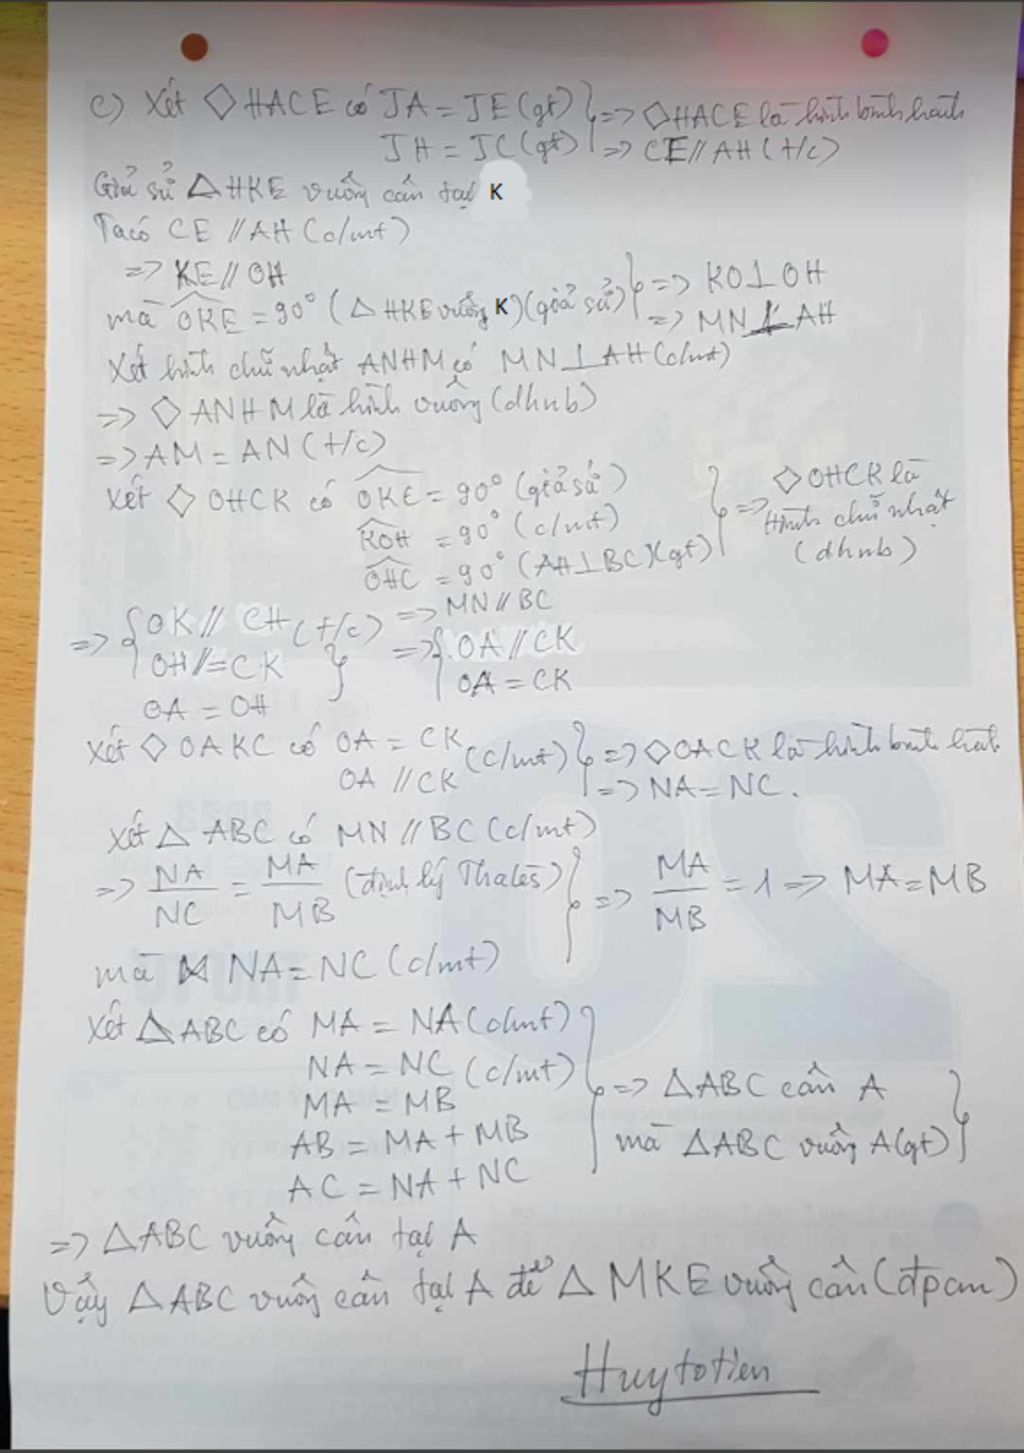 c) Xét ◇ HACE có JA = JE (gt) } => ◇HACE là hình bình hành
JH = JC (gt) } => CE // AH (t/c)
Giả sử △HKE vuông cân tại K
Ta có CE // AH (c/mt)
=> KE // OH
mà \widehat{OKE} = 90° (△HKE vuông K) (giả sử) } => KO ⊥ OH
=> MN ⊥ AH
Xét hình chữ nhật ANHM có MN ⊥ AH (c/mt)
=> ◇ ANHM là hình vuông (dhnb)
=> AM = AN (t/c)
Xét ◇ OHCK có \widehat{OKE} = 90° (giả sử)
\widehat{KOH} = 90° (c/mt)
\widehat{OHC} = 90° (AH ⊥ BC) (gt)
} => ◇OHCK là
Hình chữ nhật
(dhnb)
=> { OK // CH (t/c) => MN // BC
OH //= CK } => { OA // CK
OA = OH
OA = CK
Xét ◇ OAKC có OA = CK (c/mt) } => ◇OACK là hình bình hành
OA // CK
=> NA = NC.
Xét △ ABC có MN // BC (c/mt)
=> NA/NC = MA/MB (định lý Thalès) } => MA/MB = 1 => MA = MB
mà NA = NC (c/mt)
Xét △ABC có MA = NA (c/mt)
NA = NC (c/mt)
MA = MB
AB = MA + MB
AC = NA + NC
} => △ABC cân A
mà △ABC vuông A (gt) }
=> △ABC vuông cân tại A
Vậy △ABC vuông cân tại A để △ MKE vuông cân (đpcm)
Huytotien
20